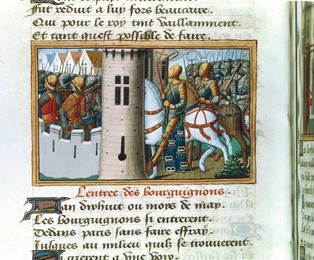 fut reduit a luy fors beauuaiz.
Qui pour le roy tint vaillamment.
Et tant quest possible de faire.
Lentree des bourguignons.
Lan dixhuit ou mois de may.
Les bourguignons si entrerent.
Dedans paris sans faire effray.
Jusques au milieu quilz se trouuerent.
crierent a vne voix.